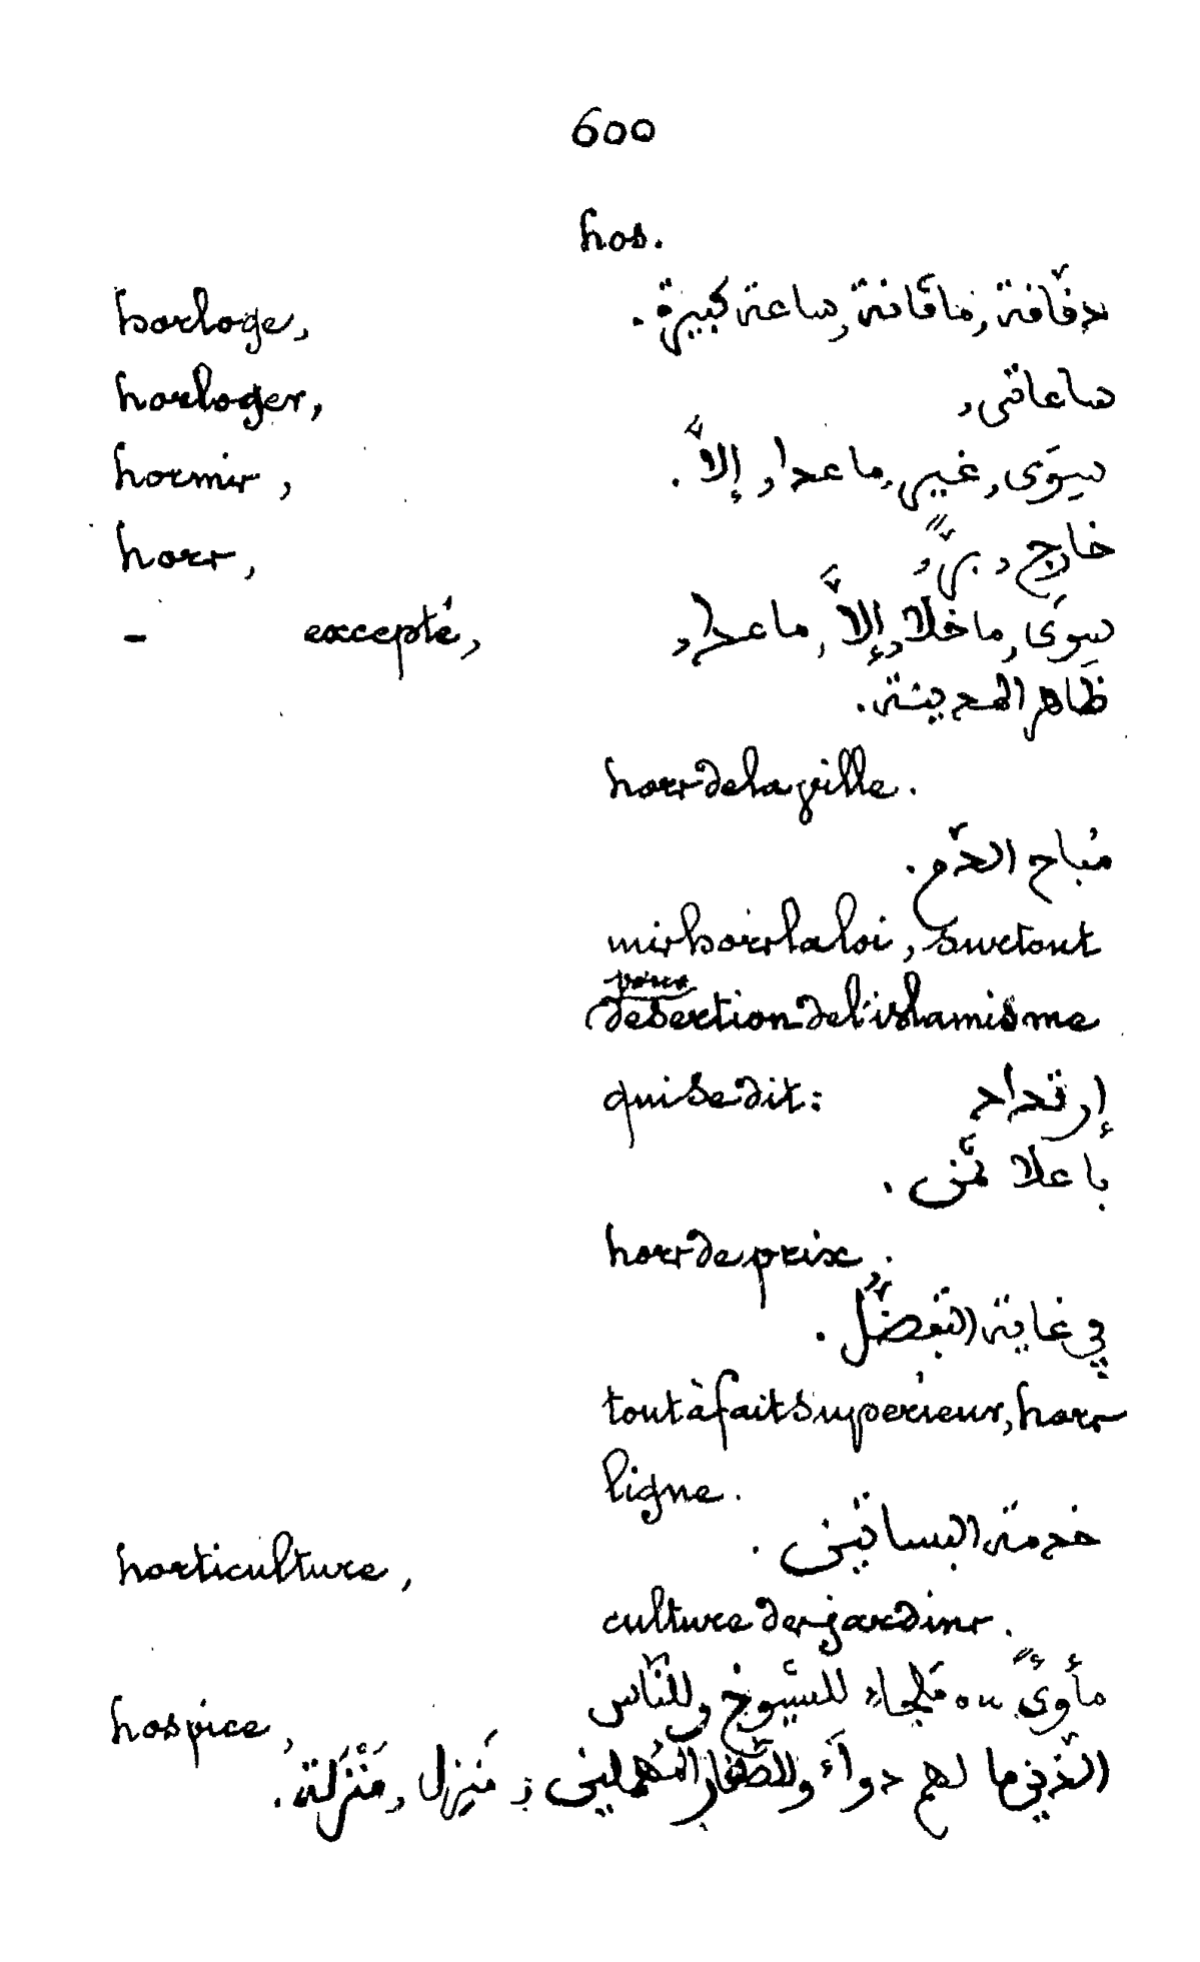 600
hos.
horloge, دقّاقة, ماقانة, ساعة كبيرة.
horloger, ساعاتي,
hormis, سِوَى, غير, ما عدا, إلاّ.
hors, خارج, برًّ,
- excepté, سِوَى, ما خلا, إلاّ, ما عدا,
ظَاهر المدينة.
hors de la ville.
مُباح الدّم.
mis hors la loi, surtout
pour
(desertion de l'islamisme
qui se dit: إرتداد
باعلا ثمن.
hors de prix.
في غاية التفضّل.
tout à fait supérieur, hors
ligne.
horticulture, خدمة البساتين.
culture des jardins.
hospice, مأوىً ou ملجاء للشيوخ وللنّاس
الّذين ما لهم دواء وللصّغار المُهملين; مَنزل, مَنْزَلة.